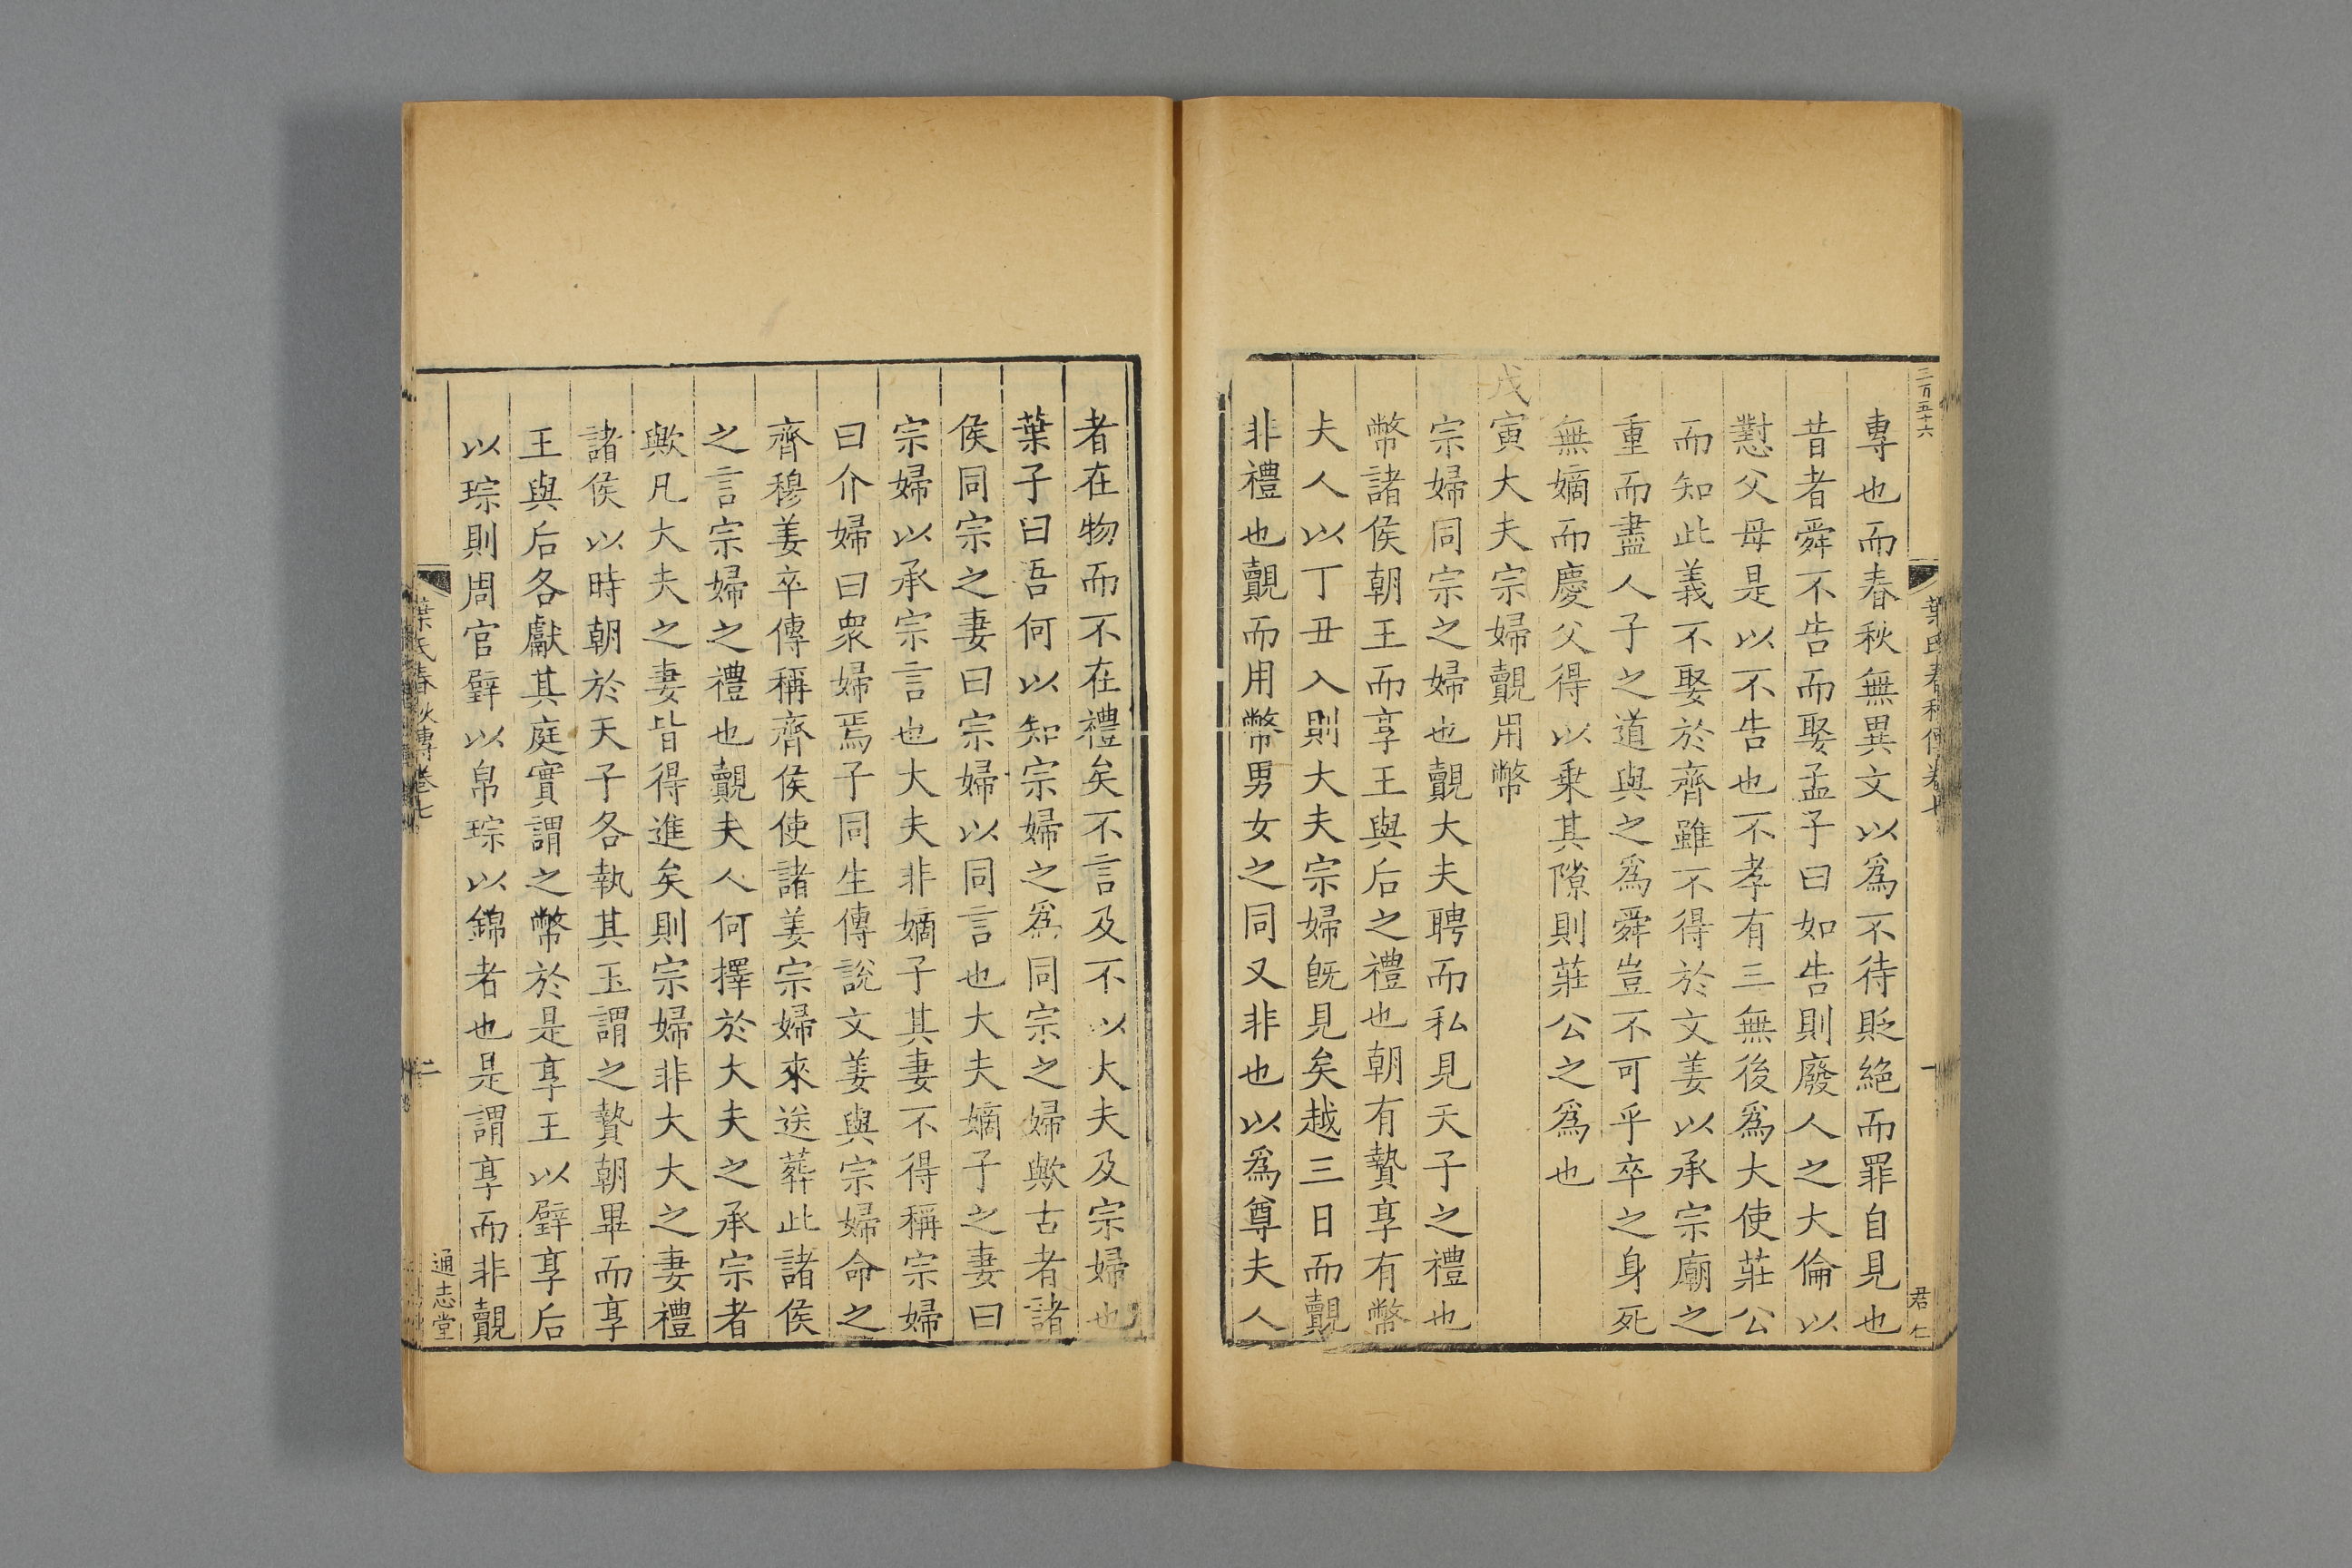 三百五十六
葉氏春秋傳卷七
一
君仁
專也而春秋無異文以爲不待貶絶而罪自見也
昔者舜不告而娶孟子曰如告則廢人之大倫以
懟父母是以不告也不孝有三無後爲大使莊公
而知此義不娶於齊雖不得於文姜以承宗廟之
重而盡人子之道與之爲舜豈不可乎卒之身死
無嫡而慶父得以乗其隙則莊公之爲也
戊寅大夫宗婦覿用幣
宗婦同宗之婦也覿大夫聘而私見天子之禮也
幣諸侯朝王而享王與后之禮也朝有贄享有幣
夫人以丁丑入則大夫宗婦旣見矣越三日而覿
非禮也覿而用幣男女之同又非也以爲尊夫人
者在物而不在禮矣不言及不以大夫及宗婦也
葉子曰吾何以知宗婦之爲同宗之婦歟古者諸
侯同宗之妻曰宗婦以同言也大夫嫡子之妻曰
宗婦以承宗言也大夫非嫡子其妻不得稱宗婦
曰介婦曰衆婦焉子同生傳說文姜與宗婦命之
齊穆姜卒傳稱齊侯使諸姜宗婦來送葬此諸侯
之言宗婦之禮也覿夫人何擇於大夫之承宗者
歟凡大夫之妻皆得進矣則宗婦非大夫之妻禮
諸侯以時朝於天子各執其玉謂之贄朝畢而享
王與后各獻其庭實謂之幣於是享王以璧享后
以琮則周官璧以帛琮以錦者也是謂享而非覿
葉氏春秋傳卷七
二
通志堂